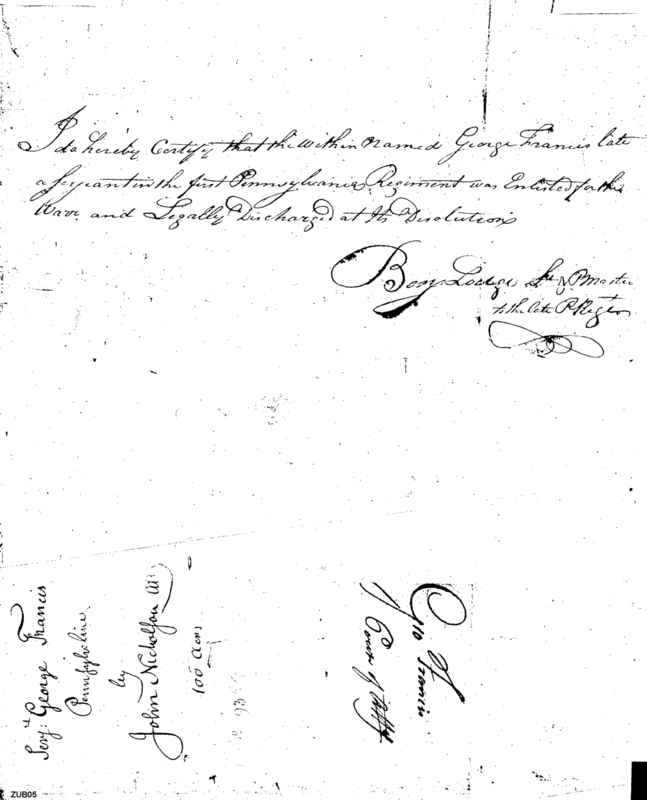 I do hereby Certify that the within Named George Francis late
a Serjeant in the first Pennsylvania Regiment was Enlisted for the
Warr and Legally Discharged at Its Disolution
Benj Lodge Lt P Master
to the late P Regt
Serjt George Francis
Pennsylva line
by
John Nicholson
100 Acres
Geo Francis
Power of Atty
ZUB05